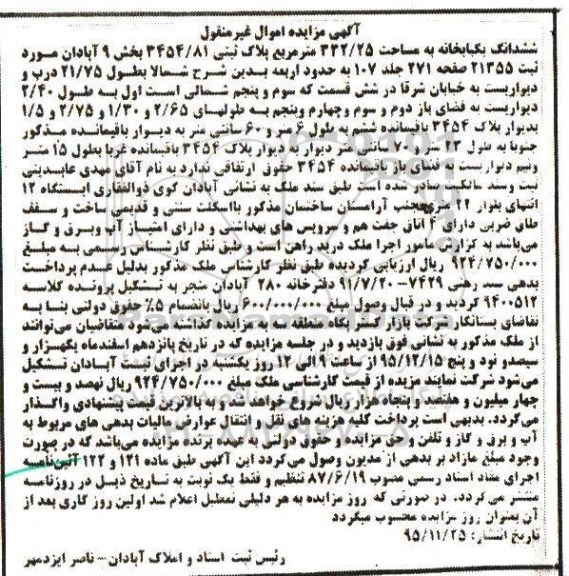 آگهی مزایده اموال غیرمنقول
ششدانگ یکبابخانه به مساحت ۳۳۲/۲۵ مترمربع پلاک ثبتی ۳۴۵۴/۸۱ بخش ۹ آبادان مورد
ثبت ۲۱۳۵۵ صفحه ۲۷۱ جلد ۱۰۷ به حدود اربعه بدین شرح شمالا بطول ۲۱/۷۵ درب و
دیواریست به خیابان شرقا در شش قسمت که سوم و پنجم شمالی است اول به طول ۲/۴۰
دیواریست به فضای باز دوم و سوم و چهارم و پنجم به طولهای ۲/۶۵ و ۱/۳۰ و ۲/۷۵ و ۱/۵
بدیوار پلاک ۳۴۵۴ باقیمانده ششم به طول ۶ متر و ۶۰ سانتی متر به دیوار باقیمانده مذکور
جنوبا به طول ۲۳ متر و ۷۰ سانتی متر دیوار به دیوار پلاک ۳۴۵۴ باقیمانده غربا بطول ۱۵ متر
ونیم دیواریست به فضای باز باقیمانده ۳۴۵۴ حقوق ارتفاقی ندارد به نام آقای مهدی عابدینی
ثبت وسند مالکیت صادر شده است طبق سند ملک به نشانی آبادان کوی ذوالفقاری ایستگاه ۱۲
انتهای بلوار ۲۴ متری جنب آرامستان ساختمان مذکور بااسکلت سنتی و قدیمی ساخت و سقف
طاق ضربی دارای ۴ اتاق جفت هم و سرویس های بهداشتی و دارای امتیاز آب وبرق و گاز
می‌باشد به گزارش مامور اجرا ملک درید راهن است و طبق نظر کارشناس رسمی به مبلغ
۹۲۴/۷۵۰/۰۰۰ ریال ارزیابی گردیده طبق نظر کارشناس ملک مذکور بدلیل عدم پرداخت
بدهی سند رهنی ۷۴۲۹-۹۱/۷/۲۰ دفترخانه ۲۸۰ آبادان منجر به تشکیل پرونده کلاسه
۹۴۰۰۵۱۲ گردید و در قبال وصول مبلغ ۶۰۰/۰۰۰/۰۰۰ ریال بانضمام ۵٪ حقوق دولتی بنا به
تقاضای بستانکار شرکت بازار گستر پگاه منطقه سه به مزایده گذاشته می‌شود متقاضیان می‌توانند
از ملک مذکور به نشانی فوق بازدید و در جلسه مزایده که در تاریخ پانزدهم اسفندماه یکهزار و
سیصدو نود و پنج ۹۵/۱۲/۱۵ از ساعت ۹ الی ۱۲ روز یکشنبه در اجرای ثبت آبادان تشکیل
می‌شود شرکت نمایند مزایده از قیمت کارشناسی ملک مبلغ ۹۲۴/۷۵۰/۰۰۰ ریال نهصد و بیست و
چهار میلیون و هفتصد و پنجاه هزار ریال شروع خواهد شد و به بالاترین قیمت پیشنهادی واگذار
می‌گردد. بدیهی است پرداخت کلیه هزینه های نقل و انتقال عوارض مالیات بدهی های مربوط به
آب و برق و گاز و تلفن و حق مزایده و حقوق دولتی به عهده برنده مزایده می‌باشد که در صورت
وجود مبلغ مازاد بر بدهی از مدیون وصول می‌گردد این آگهی طبق ماده ۱۲۱ و ۱۲۲ آئین‌نامه
اجرای مفاد اسناد رسمی مصوب ۸۷/۶/۱۹ تنظیم و فقط یک نوبت به تاریخ ذیل در روزنامه
منتشر می‌گردد. در صورتی که روز مزایده به هر دلیلی تعطیل اعلام شد اولین روز کاری بعد از
آن بعنوان روز مزایده محسوب میگردد
تاریخ انتشار: ۹۵/۱۱/۲۵
رئیس ثبت اسناد و املاک آبادان - ناصر ایزدمهر